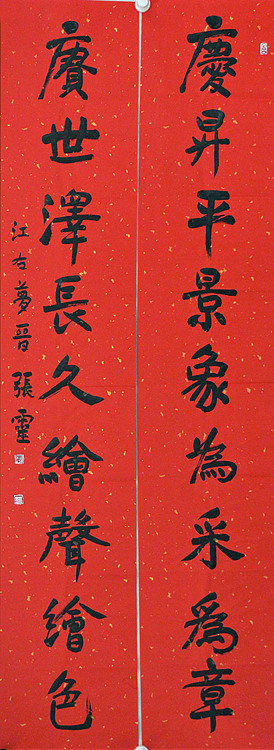 慶昇平景象為采為章
賡世澤長久繪聲繪色
江右夢晋 張靈